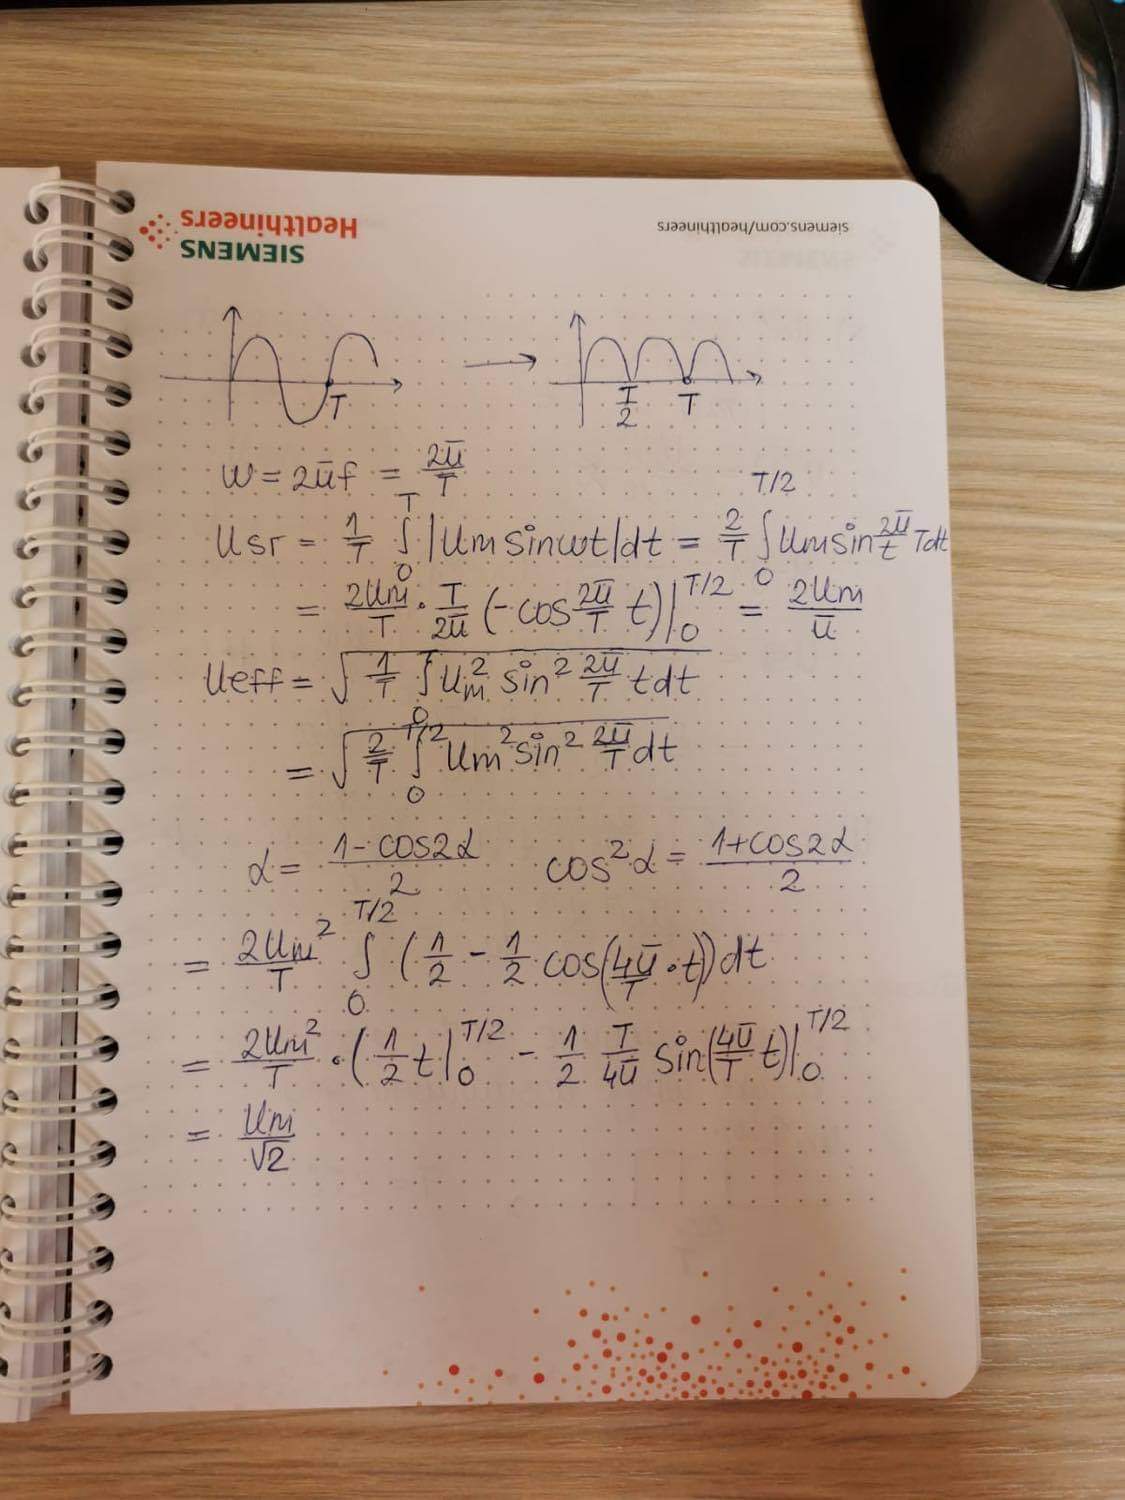 siemens.com/healthineers
SIEMENS
Healthineers
T
T/2 T
w = 2ūf = 2ū/T
Usr = 1/T ∫₀ᵀ |Um sin ωt| dt = 2/T ∫₀^T/2 Um sin 2ū/t T dt
= 2Um/T · T/2ū (-cos 2ū/T t)|₀^T/2 = 2Um/ū
Ueff = √(1/T ∫₀ Um² sin² 2ū/T t dt)
= √(2/T ∫₀^T/2 Um² sin² 2ū/T dt)
α = (1 - cos2α)/2 cos²α = (1 + cos2α)/2
= 2Um²/T ∫₀^T/2 (1/2 - 1/2 cos(4ū/T · t)) dt
= 2Um²/T · (1/2 t|₀^T/2 - 1/2 T/4ū sin(4ū/T t)|₀^T/2
= Um/√2